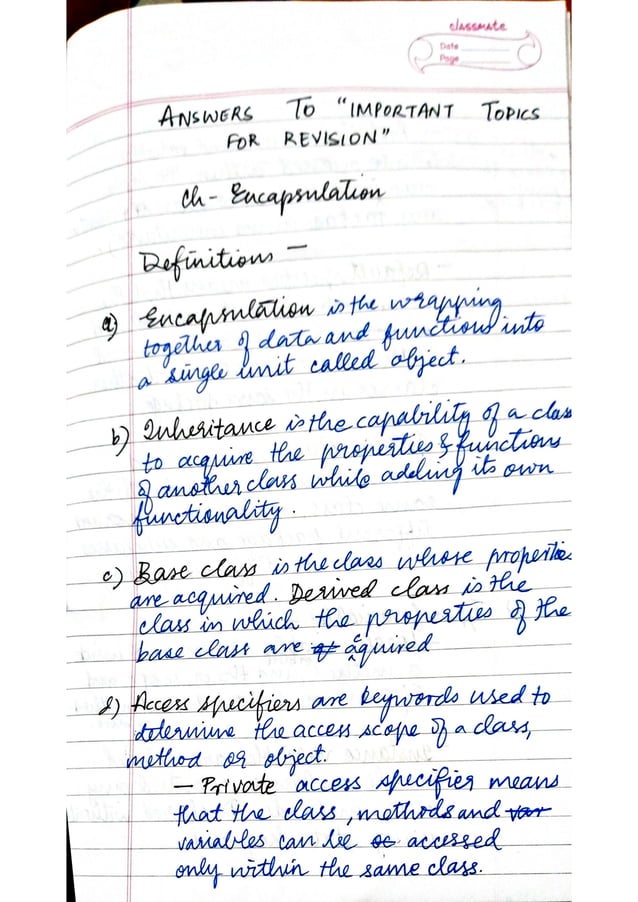 classmate
Date
Page
ANSWERS TO "IMPORTANT TOPICS
FOR REVISION"
Ch - Encapsulation
Definitions —
a) Encapsulation is the wrapping
together of data and functions into
a single unit called object.
b) Inheritance is the capability of a class
to acquire the properties & functions
of another class while adding its own
functionality.
c) Base class is the class whose propertie
are acquired. Derived class is the
class in which the properties of the
base class are aquired
d) Access specifiers are keywords used to
determine the access scope of a class,
method or object.
— Private access specifier means
that the class, methods and var
variables can be accessed
only within the same class.